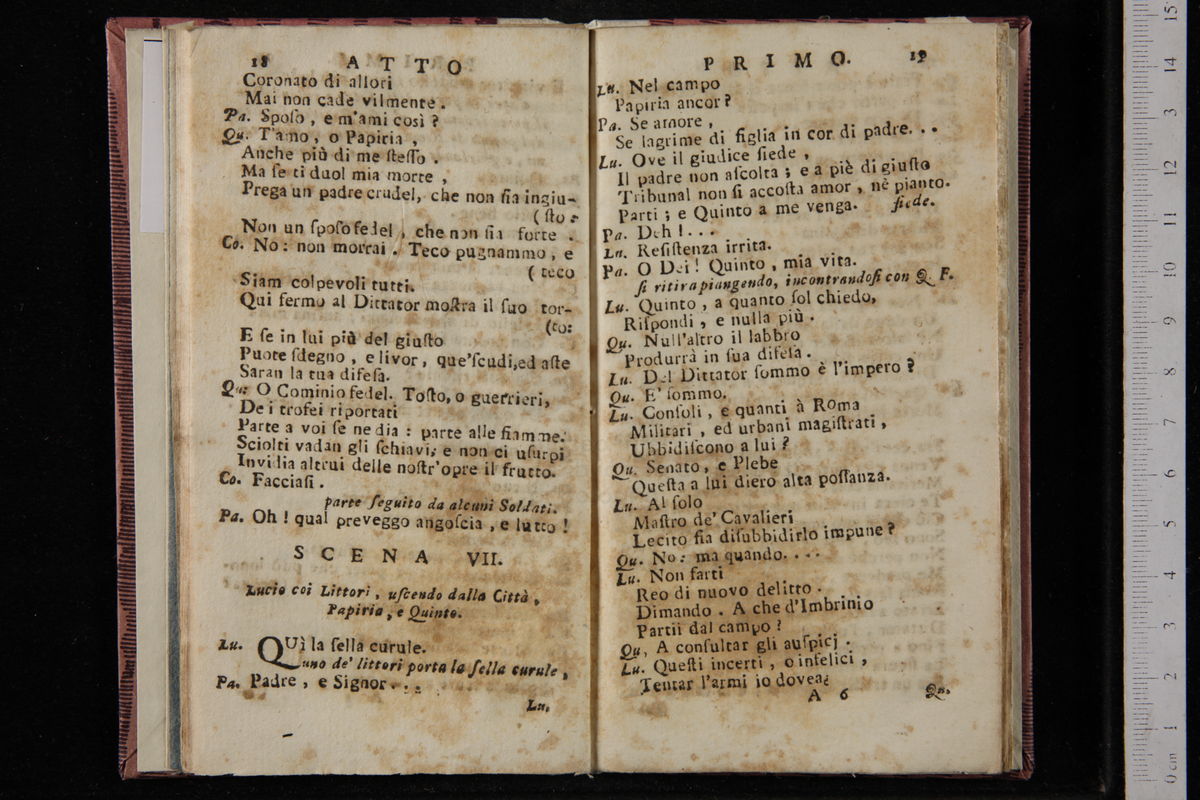 18 ATTO
Coronato di allori
Mai non cade vilmente.
Pa. Spoſo, e m'ami così?
Qu. T'amo, o Papiria,
Anche più di me ſteſſo.
Ma ſe ti duol mia morte,
Prega un padre crudel, che non ſia ingiu-
(ſto:
Non un ſpoſo fedel, che non ſia forte.
Co. No: non morrai. Teco pugnammo, e
(teco
Siam colpevoli tutti.
Qui fermo al Dittator moſtra il ſuo tor-
(to:
E ſe in lui più del giuſto
Puote ſdegno, e livor, que'ſcudi, ed aſte
Saran la tua difeſa.
Qu: O Cominio fedel. Toſto, o guerrieri,
De i trofei riportati
Parte a voi ſe ne dia: parte alle fiamme.
Sciolti vadan gli ſchiavi, e non ci uſurpi
Invidia altrui delle noſtr'opre il frutto.
Co. Facciaſi.
parte ſeguito da alcuni Soldati.
Pa. Oh! qual preveggo angoſcia, e lutto!
SCENA VII.
Lucio coi Littori, uſcendo dalla Città,
Papiria, e Quinto.
Lu. QUì la ſella curule.
uno de' littori porta la ſella curule,
Pa. Padre, e Signor...
Lu.
PRIMO. 19
Lu. Nel campo
Papiria ancor?
Pa. Se amore,
Se lagrime di figlia in cor di padre...
Lu. Ove il giudice ſiede,
Il padre non aſcolta; e a piè di giuſto
Tribunal non ſi accoſta amor, nè pianto.
Parti; e Quinto a me venga. ſiede.
Pa. Deh!...
Lu. Reſiſtenza irrita.
Pa. O Dei! Quinto, mia vita.
ſi ritira piangendo, incontrandoſi con Q. F.
Lu. Quinto, a quanto ſol chiedo,
Riſpondi, e nulla più.
Qu. Null'altro il labbro
Produrrà in ſua difeſa.
Lu. Del Dittator ſommo è l'impero?
Qu. E' ſommo.
Lu. Conſoli, e quanti à Roma
Militari, ed urbani magiſtrati,
Ubbidiſcono a lui?
Qu. Senato, e Plebe
Queſta a lui diero alta poſſanza.
Lu. Al ſolo
Maſtro de' Cavalieri
Lecito ſia diſubbidirlo impune?
Qu. No: ma quando....
Lu. Non farti
Reo di nuovo delitto.
Dimando. A che d'Imbrinio
Partii dal campo?
Qu, A conſultar gli auſpicj.
Lu. Queſti incerti, o infelici,
Tentar l'armi io dovea?
A 6 Qu.